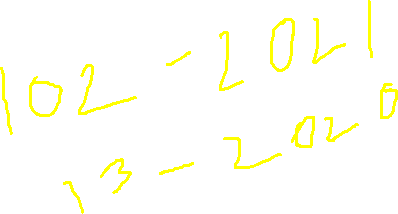 102-2021
13-2020